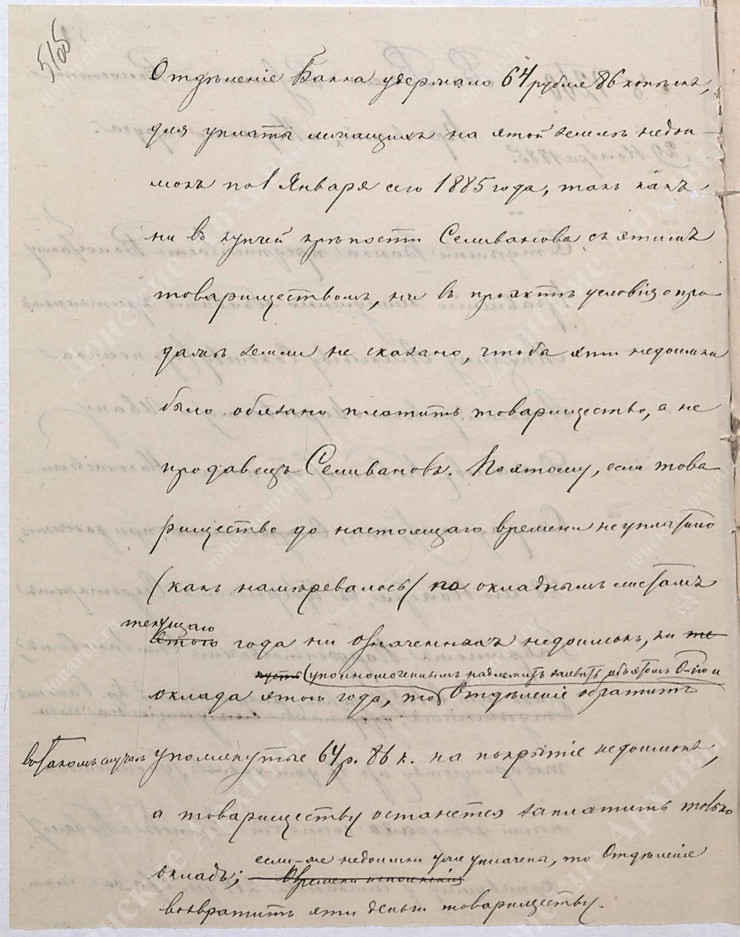 5/об
Отдѣленіе Банка удержало 64 рубля 86 копѣекъ,
для уплаты лежащихъ на этой землѣ недои-
мокъ по 1 Января сего 1885 года, такъ какъ
ни въ купчей крѣпости Селиванова съ этимъ
товариществомъ, ни въ проэктѣ условія о про-
дажѣ земли не сказано, чтобы эти недоимки
было обязано платить товарищество, а не
продавецъ Селивановъ. Поэтому, если това-
рищество до настоящаго времени не уплатило
(какъ намѣревалось) по окладнымъ листамъ
текущаго
этого года ни означенныхъ недоимокъ, ни
(уполномоченнымъ надлежитъ заявить объ этомъ О-ію и
оклада этого года, то Отдѣленіе обратитъ
въ такомъ случаѣ упомянутые 64 р. 86 к. на покрытіе недоимокъ,
а товариществу останется заплатить только
если-же недоимки уже уплачены, то Отдѣленіе
окладъ;
возвратитъ эти деньги товариществу.